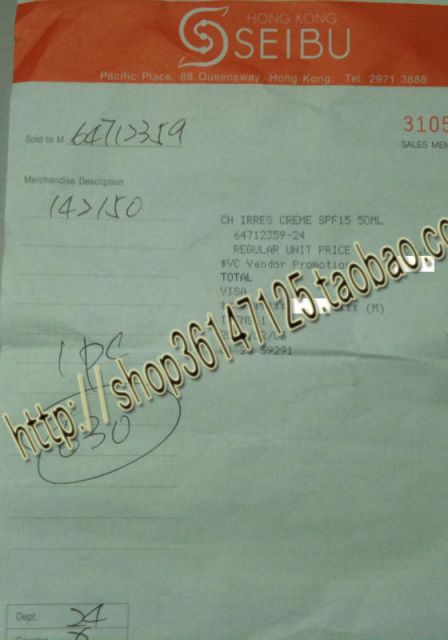 HONG KONG
SEIBU
Pacific Place, 88 Queensway, Hong Kong. Tel: 2971 3888
3105
SALES MEM
Sold to M 64712359
Merchandise Description
142150
CH IRRES CREME SPF15 50ML
64712359-24
REGULAR UNIT PRICE
$VC Vendor Promotion
TOTAL
VISA
(M)
1
59291
1 PC
http://shop36147125.taobao.co
Dept. 24
Counter